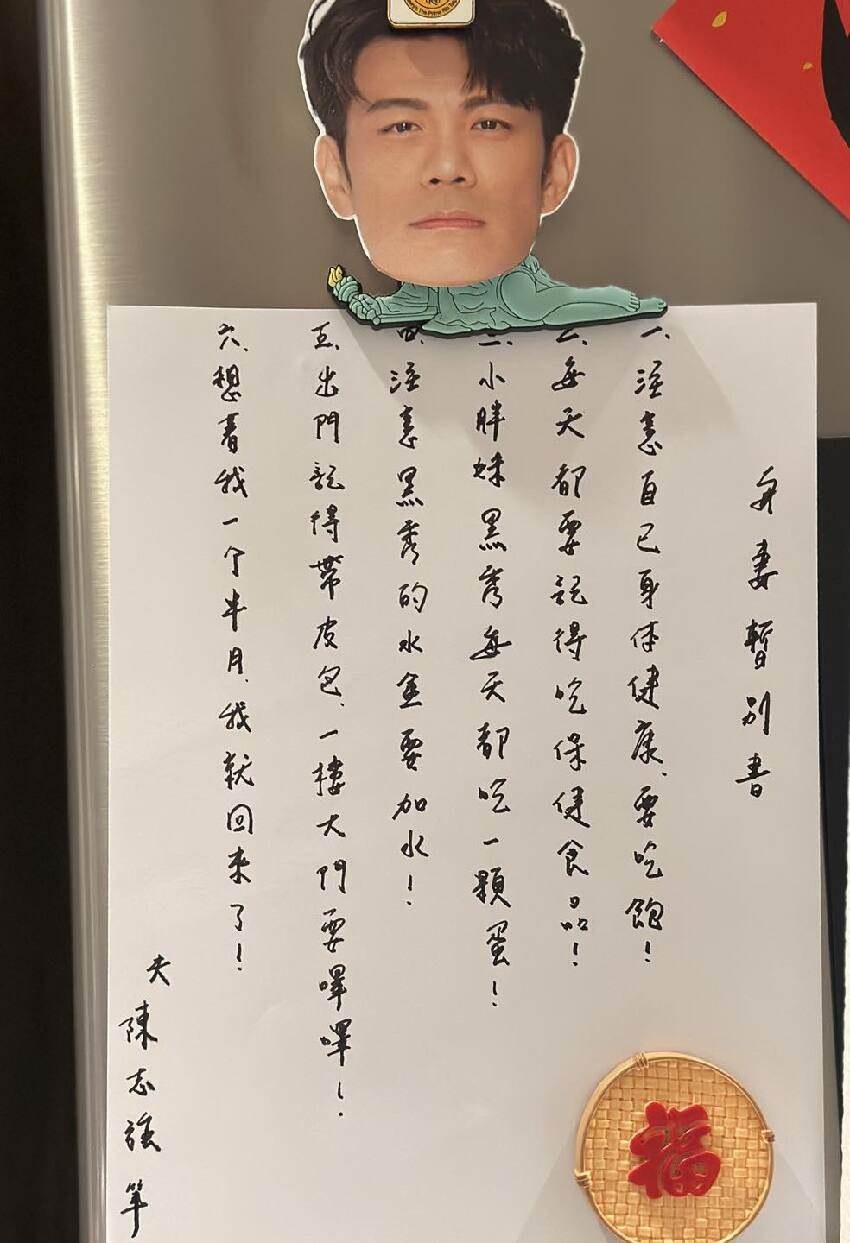 與妻暫別書
一、注意自己身体健康、要吃飽！
二、每天都要記得吃保健食品！
三、小胖妹黑秀每天都吃一顆蛋！
四、注意黑秀的水盆要加水！
五、出門記得帶皮包、一樓大門要嗶嗶！
六、想着我一个半月、我就回來了！
夫
陳志強筆
福